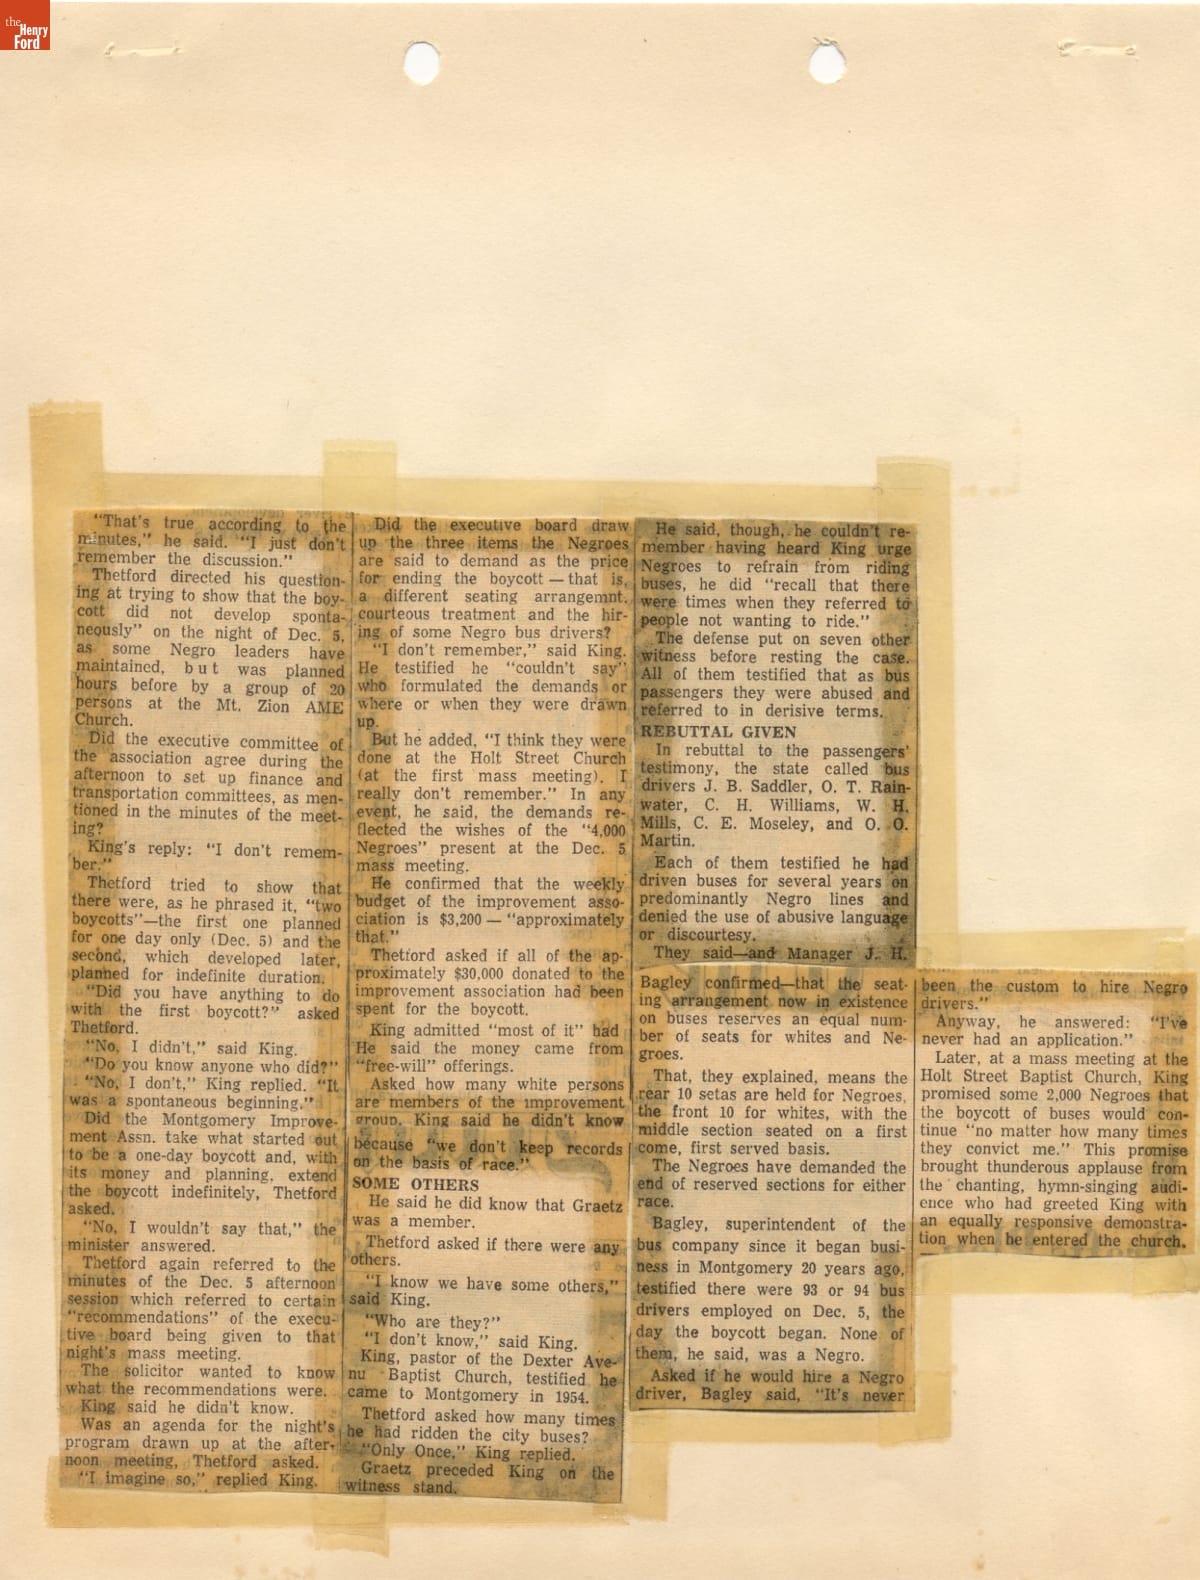 the
Henry
Ford
"That's true according to the
minutes," he said. "I just don't
remember the discussion."
Thetford directed his question-
ing at trying to show that the boy-
cott did not develop sponta-
neously" on the night of Dec. 5,
as some Negro leaders have
maintained, but was planned
hours before by a group of 20
persons at the Mt. Zion AME
Church.
Did the executive committee of
the association agree during the
afternoon to set up finance and
transportation committees, as men-
tioned in the minutes of the meet-
ing?
King's reply: "I don't remem-
ber."
Thetford tried to show that
there were, as he phrased it, "two
boycotts"—the first one planned
for one day only (Dec. 5) and the
second, which developed later,
planned for indefinite duration.
"Did you have anything to do
with the first boycott?" asked
Thetford.
"No, I didn't," said King.
"Do you know anyone who did?"
"No, I don't," King replied. "It
was a spontaneous beginning."
Did the Montgomery Improve-
ment Assn. take what started out
to be a one-day boycott and, with
its money and planning, extend
the boycott indefinitely, Thetford
asked.
"No, I wouldn't say that," the
minister answered.
Thetford again referred to the
minutes of the Dec. 5 afternoon
session which referred to certain
"recommendations" of the execu-
tive board being given to that
night's mass meeting.
The solicitor wanted to know
what the recommendations were.
King said he didn't know.
Was an agenda for the night's
program drawn up at the after-
noon meeting, Thetford asked.
"I imagine so," replied King.
Did the executive board draw
up the three items the Negroes
are said to demand as the price
for ending the boycott — that is,
a different seating arrangemnt,
courteous treatment and the hir-
ing of some Negro bus drivers?
"I don't remember," said King.
He testified he "couldn't say"
who formulated the demands or
where or when they were drawn
up.
But he added, "I think they were
done at the Holt Street Church
(at the first mass meeting). I
really don't remember." In any
event, he said, the demands re-
flected the wishes of the "4,000
Negroes" present at the Dec. 5
mass meeting.
He confirmed that the weekly
budget of the improvement asso-
ciation is $3,200 — "approximately
that."
Thetford asked if all of the ap-
proximately $30,000 donated to the
improvement association had been
spent for the boycott.
King admitted "most of it" had
He said the money came from
"free-will" offerings.
Asked how many white persons
are members of the improvement
group, King said he didn't know
because "we don't keep records
on the basis of race."
SOME OTHERS
He said he did know that Graetz
was a member.
Thetford asked if there were any
others.
"I know we have some others,"
said King.
"Who are they?"
"I don't know," said King.
King, pastor of the Dexter Ave-
nu Baptist Church, testified he
came to Montgomery in 1954.
Thetford asked how many times
he had ridden the city buses?
"Only Once," King replied.
Graetz preceded King on the
witness stand.
He said, though, he couldn't re-
member having heard King urge
Negroes to refrain from riding
buses, he did "recall that there
were times when they referred to
people not wanting to ride."
The defense put on seven other
witness before resting the case.
All of them testified that as bus
passengers they were abused and
referred to in derisive terms.
REBUTTAL GIVEN
In rebuttal to the passengers'
testimony, the state called bus
drivers J. B. Saddler, O. T. Rain-
water, C. H. Williams, W. H.
Mills, C. E. Moseley, and O. O.
Martin.
Each of them testified he had
driven buses for several years on
predominantly Negro lines and
denied the use of abusive language
or discourtesy.
They said—and Manager J. H.
Bagley confirmed—that the seat-
ing arrangement now in existence
on buses reserves an equal num-
ber of seats for whites and Ne-
groes.
That, they explained, means the
rear 10 setas are held for Negroes,
the front 10 for whites, with the
middle section seated on a first
come, first served basis.
The Negroes have demanded the
end of reserved sections for either
race.
Bagley, superintendent of the
bus company since it began busi-
ness in Montgomery 20 years ago,
testified there were 93 or 94 bus
drivers employed on Dec. 5, the
day the boycott began. None of
them, he said, was a Negro.
Asked if he would hire a Negro
driver, Bagley said, "It's never
been the custom to hire Negro
drivers."
Anyway, he answered: "I've
never had an application."
Later, at a mass meeting at the
Holt Street Baptist Church, King
promised some 2,000 Negroes that
the boycott of buses would con-
tinue "no matter how many times
they convict me." This promise
brought thunderous applause from
the chanting, hymn-singing audi-
ence who had greeted King with
an equally responsive demonstra-
tion when he entered the church.